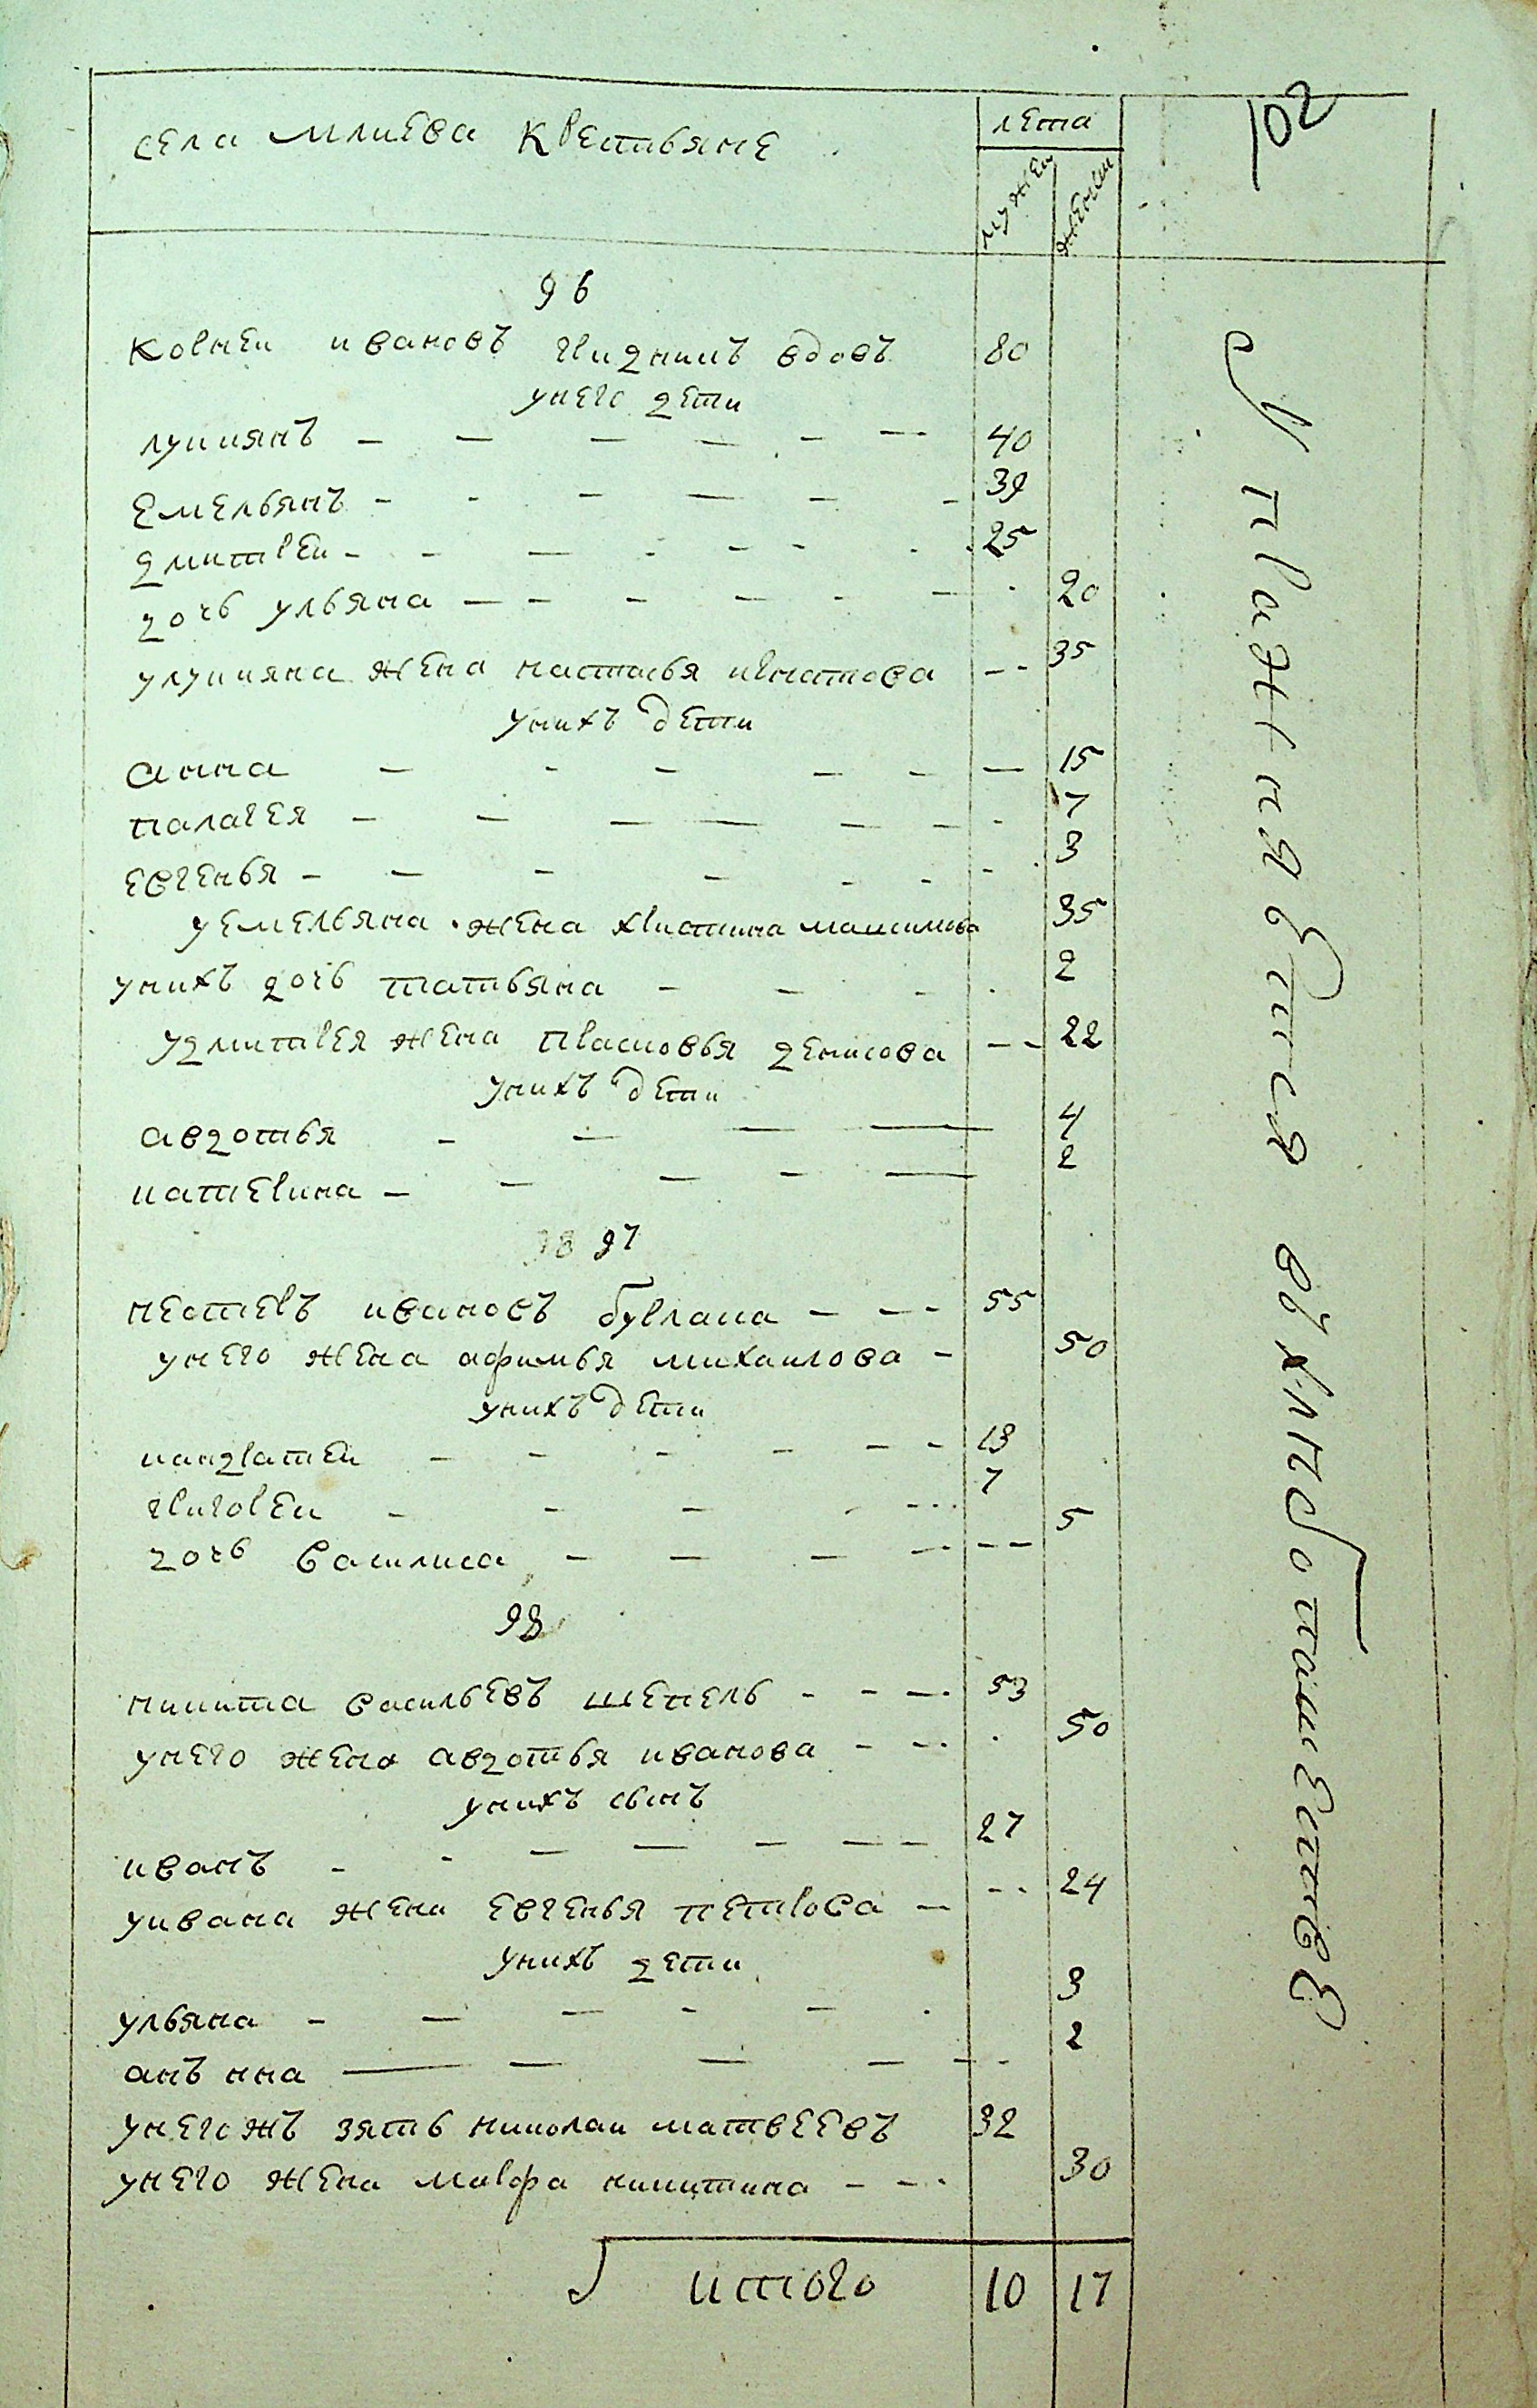 102
села млиева крестьяне
лета
мужеи
женски
96
корнеи ивановъ гридninъ вдовъ
80
унего дети
лукиянъ
40
емельянъ
39
дмитреи
25
дочь ульяна
20
улукияна жена настасья игнатова
35
унихъ дети
анна
15
палагея
7
евгенья
3
уемельяна жена христина максимова
35
унихъ дочь татьяна
2
удмитрея жена прасковья денисова
22
унихъ дети
авдотья
4
катерина
2
97
нестеръ ивановъ бурлака
55
унего жена афимья михаилова
50
унихъ дети
кандратеи
13
григореи
7
дочь василиса
5
98
никита васильевъ шепель
53
унего жена авдотья иванова
50
унихъ сынъ
иванъ
27
уивана жена евгенья петрова
24
унихъ дети
ульяна
3
анъ нна
2
унегожъ зять николаи матвеевъ
32
унего жена марфа никитина
30
итого
10
17